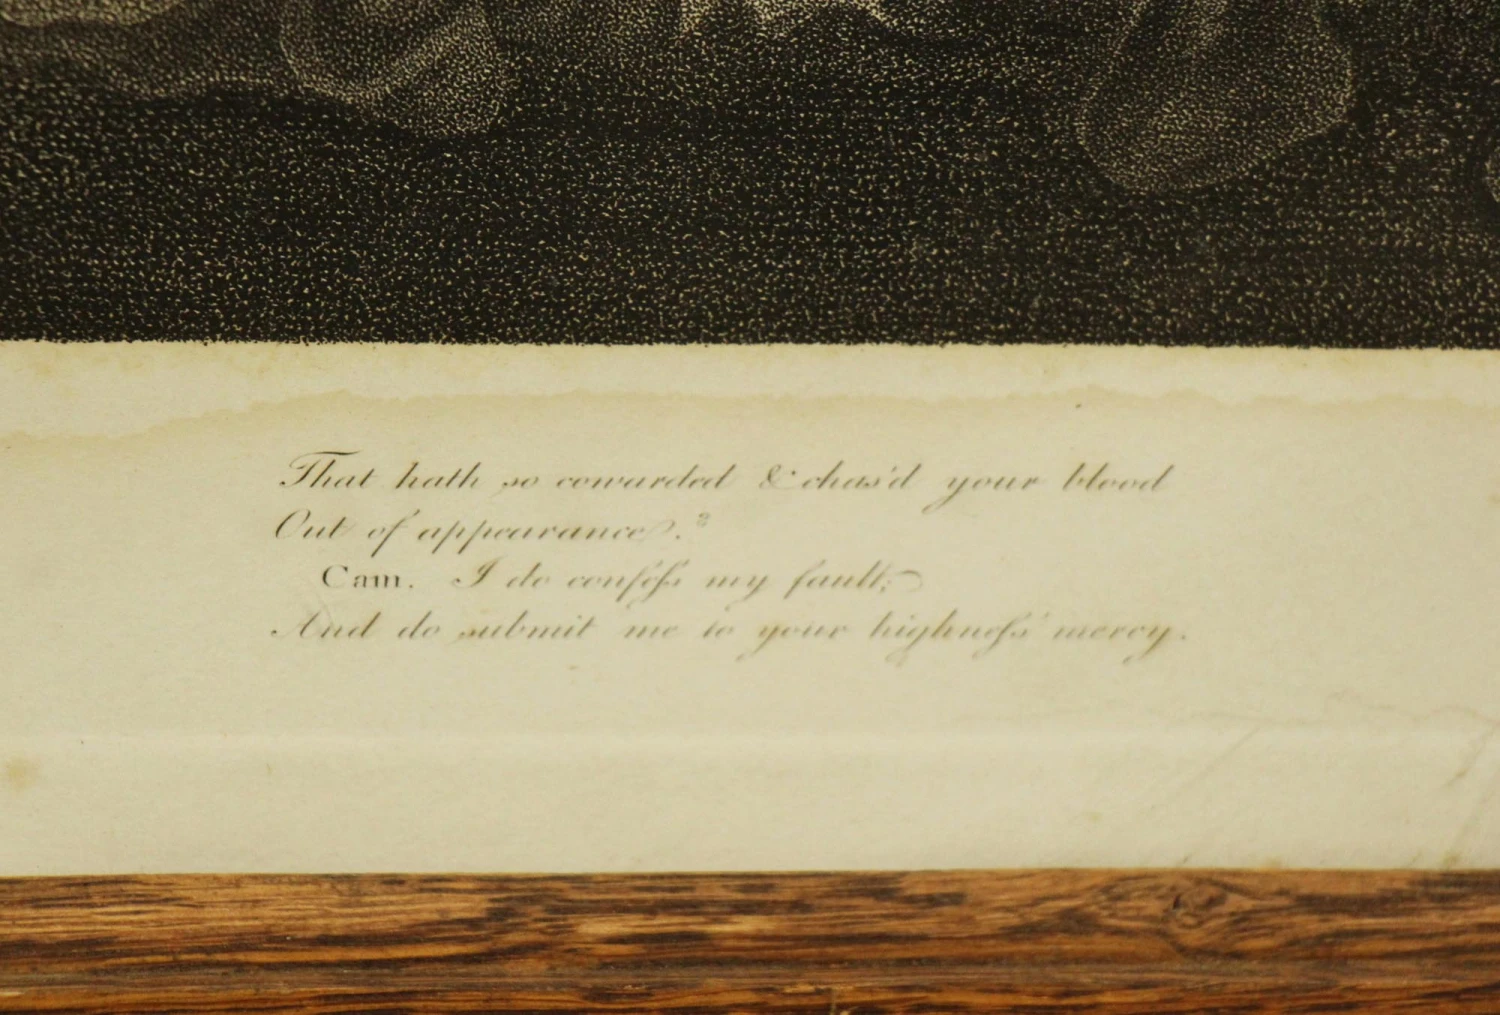 That hath so cowarded & chas'd your blood
Out of appearance.?
Cam. I do confeſs my fault;
And do submit me to your highneſs' mercy.